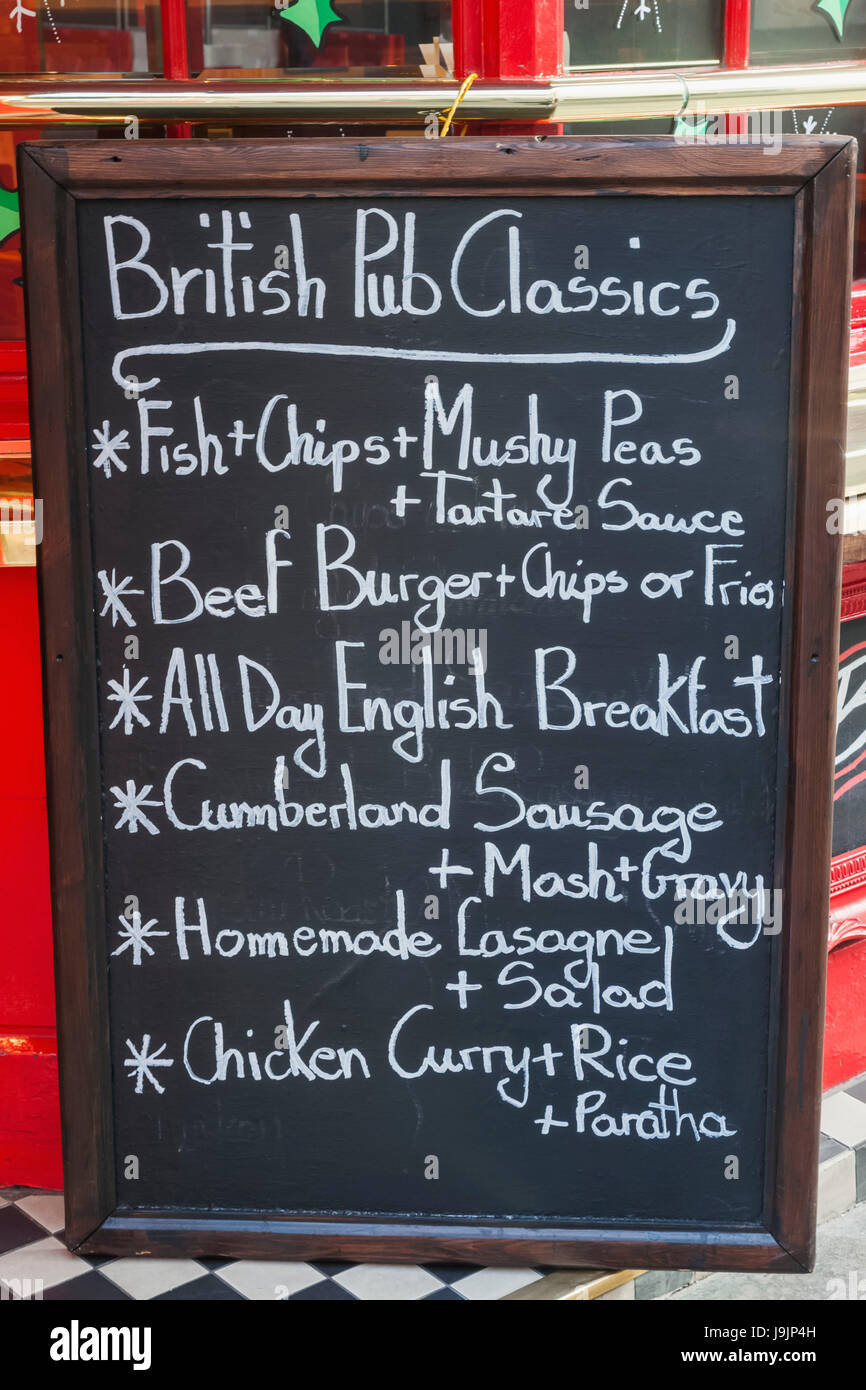 British Pub Classics
* Fish + Chips + Mushy Peas
+ Tartare Sauce
* Beef Burger + Chips or Fries
* All Day English Breakfast
* Cumberland Sausage
+ Mash + Gravy
* Homemade Lasagne
+ Salad
* Chicken Curry + Rice
+ Paratha
alamy stock photo
J9JP4H
www.alamy.com